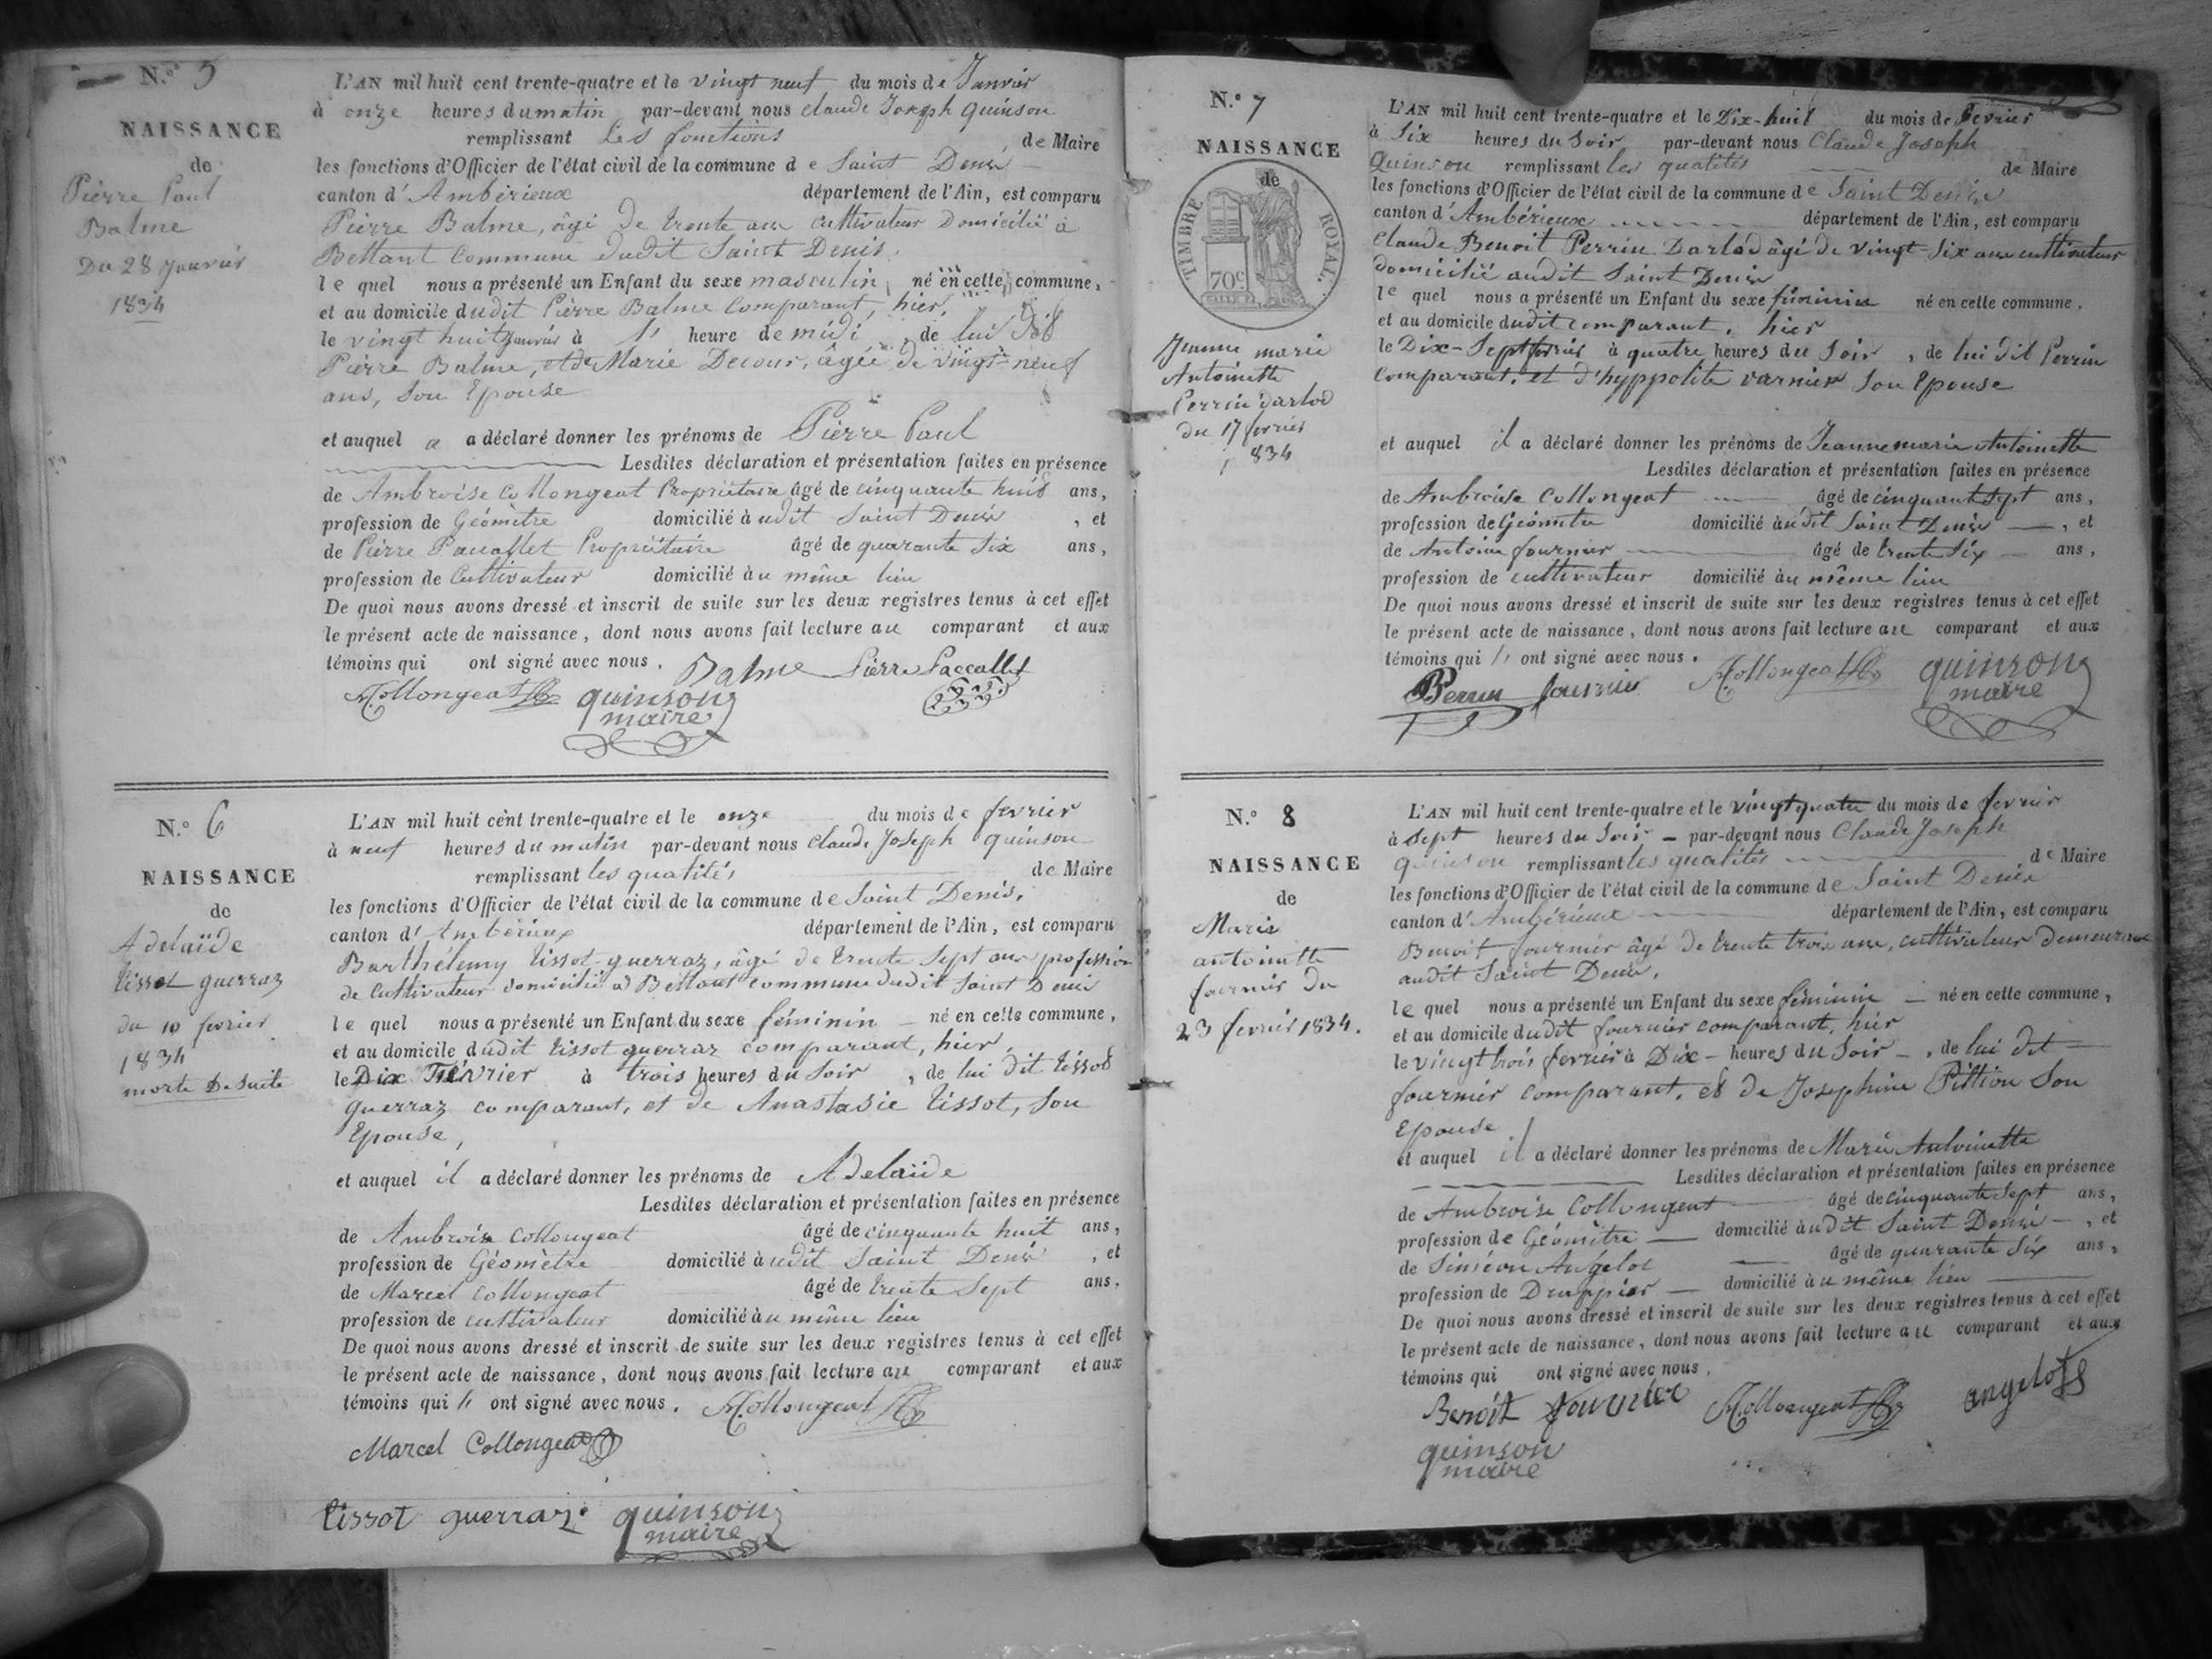 N.° 5
NAISSANCE
de
Pierre Paul
Balme
Du 28 Janvier
1834
L'AN mil huit cent trente-quatre et le vingt neuf du mois de Janvier
à onze heures du matin par-devant nous Claude Joseph quinson
remplissant les fonctions de Maire
les fonctions d'Officier de l'état civil de la commune de Saint Denis
canton d'Ambérieux département de l'Ain, est comparu
Pierre Balme, âgé de trente ans cultivateur Domicilié à
Bettant Commune dudit Saint Denis.
lequel nous a présenté un Enfant du sexe masculin, né en cette commune,
et au domicile dudit Pierre Balme Comparant, hier,
le vingt huit Janvier à 1 heure de midi, de lui dit
Pierre Balme, et de Marie Decour, âgée de vingt-neuf
ans, Son Epouse
et auquel a a déclaré donner les prénoms de Pierre Paul
Lesdites déclaration et présentation faites en présence
de Ambroise Collongeat Propriétaire âgé de cinquante huit ans,
profession de Géomètre domicilié àudit Saint Denis, et
de Pierre Pacallet Propriétaire âgé de quarante six ans,
profession de Cultivateur domicilié àu même lieu
De quoi nous avons dressé et inscrit de suite sur les deux registres tenus à cet effet
le présent acte de naissance, dont nous avons fait lecture au comparant et aux
témoins qui ont signé avec nous.
Balme Pierre Paccallet
A. Collongeat quinson
maire
N.° 6
NAISSANCE
de
Adelaïde
tissot guerraz
du 10 fevrier
1834
morte De Suite
L'AN mil huit cent trente-quatre et le onze du mois de fevrier
à neuf heures du matin par-devant nous Claude Joseph quinson
remplissant les qualités de Maire
les fonctions d'Officier de l'état civil de la commune de Saint Denis,
canton d'Ambérieux département de l'Ain, est comparu
Barthélemy tissot-guerraz, âgé de trente Sept ans profession
de Cultivateur domicilié à Bettant commune dudit Saint Denis
lequel nous a présenté un Enfant du sexe féminin né en cette commune,
et au domicile dudit tissot guerraz comparant, hier,
le Dix Février à trois heures du Soir, de lui dit tissot
guerraz comparant, et de Anastasie tissot, Son
Epouse,
et auquel il a déclaré donner les prénoms de Adelaïde
Lesdites déclaration et présentation faites en présence
de Ambroise Collongeat âgé de cinquante huit ans,
profession de Géomètre domicilié àudit Saint Denis, et
de Marcel Collongeat âgé de trente Sept ans,
profession de cultivateur domicilié àu même lieu
De quoi nous avons dressé et inscrit de suite sur les deux registres tenus à cet effet
le présent acte de naissance, dont nous avons fait lecture au comparant et aux
témoins qui ont signé avec nous. A. Collongeat
Marcel Collongeat
tissot guerraz quinson
maire
N.° 7
NAISSANCE
de
TIMBRE ROYAL.
70c
Jeanne marie
Antoinette
Perrin Darlod
du 17 fevrier
1834
L'AN mil huit cent trente-quatre et le Dix-huit du mois de Fevrier
à Six heures du Soir par-devant nous Claude Joseph
Quinson remplissant les qualités de Maire
les fonctions d'Officier de l'état civil de la commune de Saint Denis
canton d'Ambérieux département de l'Ain, est comparu
Claude Benoit Perrin Darlod âgé de vingt-Six ans cultivateur
domicilié audit Saint Denis
lequel nous a présenté un Enfant du sexe féminin né en cette commune,
et au domicile dudit comparant, hier
le Dix-Sept fevrier à quatre heures du Soir, de lui dit Perrin
comparant, et d'hyppolite varnier Son Epouse
et auquel il a déclaré donner les prénoms de Jeanne marie Antoinette
Lesdites déclaration et présentation faites en présence
de Ambroise Collongeat âgé de cinquant Sept ans,
profession de Géomètre domicilié àudit Saint Denis, et
de Antoine fournier âgé de trente Six ans,
profession de cultivateur domicilié àu même lieu
De quoi nous avons dressé et inscrit de suite sur les deux registres tenus à cet effet
le présent acte de naissance, dont nous avons fait lecture au comparant et aux
témoins qui ont signé avec nous.
Perrin fournier A. Collongeat quinson
maire
N.° 8
NAISSANCE
de
Marie
antoinette
fournier Du
23 fevrier 1834.
L'AN mil huit cent trente-quatre et le vingt quatre du mois de fevrier
à Sept heures du Soir par-devant nous Claude Joseph
quinson remplissant les qualités de Maire
les fonctions d'Officier de l'état civil de la commune de Saint Denis
canton d'Ambérieux département de l'Ain, est comparu
Benoit fournier âgé de trente trois ans, cultivateur demeurant
audit Saint Denis,
lequel nous a présenté un Enfant du sexe féminin né en cette commune,
et au domicile dudit fournier comparant, hier
le vingt trois fevrier à Dix heures du Soir, de lui dit
fournier comparant, et de Josephine Pittion Son
Epouse
et auquel il a déclaré donner les prénoms de Marie Antoinette
Lesdites déclaration et présentation faites en présence
de Ambroise Collongeat âgé de cinquante Sept ans,
profession de Géomètre domicilié àudit Saint Denis, et
de Siméon Angelot âgé de quarante Six ans,
profession de Drappier domicilié àu même lieu
De quoi nous avons dressé et inscrit de suite sur les deux registres tenus à cet effet
le présent acte de naissance, dont nous avons fait lecture au comparant et aux
témoins qui ont signé avec nous.
Benoit fournier A. Collongeat angelot
quinson
maire